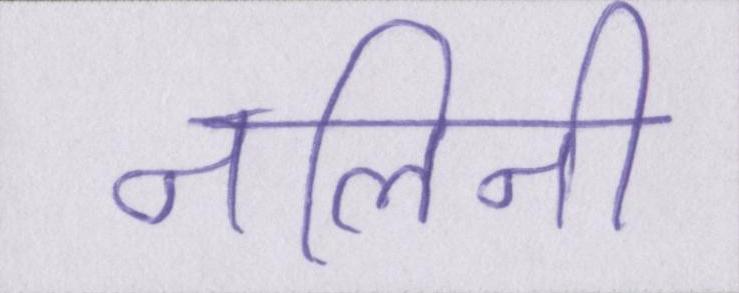 नलिनी